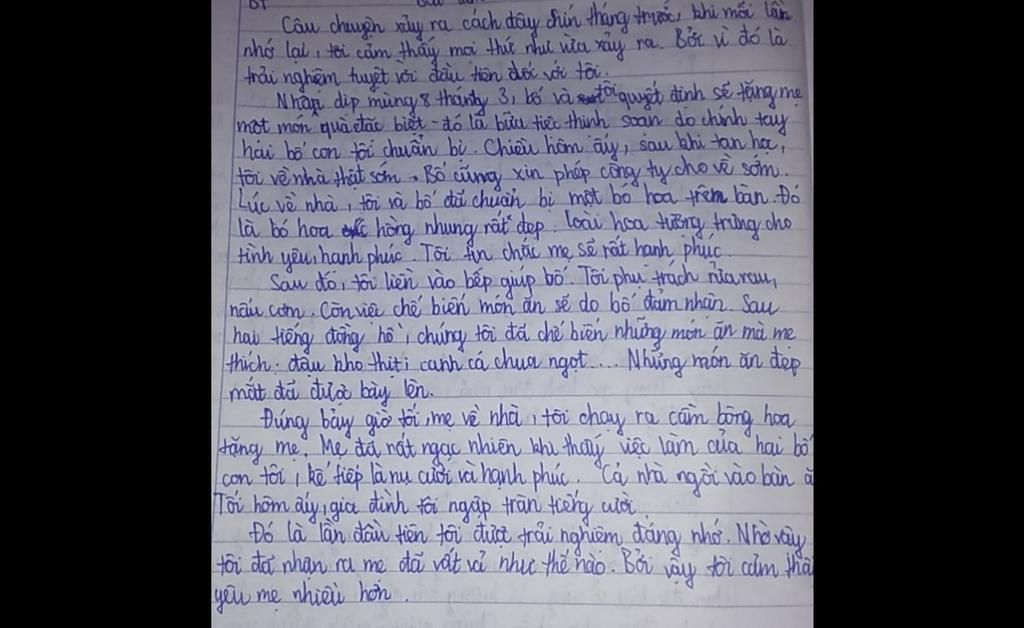 BT
Câu chuyện xảy ra cách đây chín tháng trước, khi mỗi lần
nhớ lại, tôi cảm thấy mọi thứ như vừa xảy ra. Bởi vì đó là
trải nghiệm tuyệt vời đầu tiên đối với tôi.
Nhân dịp mùng 8 tháng 3, bố và tôi quyết định sẽ tặng mẹ
một món quà đặc biệt - đó là bữu tiệc thịnh soạn do chính tay
hai bố con tôi chuẩn bị. Chiều hôm ấy, sau khi tan học,
tôi về nhà thật sớm. Bố cũng xin phép công ty cho về sớm.
Lúc về nhà, tôi và bố đã chuẩn bị một bó hoa trên bàn. Đó
là bó hoa hồng nhung rất đẹp. Loài hoa tượng trưng cho
tình yêu, hạnh phúc. Tôi tin chắc mẹ sẽ rất hạnh phúc.
Sau đó, tôi liền vào bếp giúp bố. Tôi phụ trách rửa rau,
nấu cơm. Còn việc chế biến món ăn sẽ do bố đảm nhận. Sau
hai tiếng đồng hồ, chúng tôi đã chế biến những món ăn mà mẹ
thích: đậu kho thịt, canh cá chua ngọt.... Những món ăn đẹp
mắt đã được bày lên.
Đúng bảy giờ tối, mẹ về nhà, tôi chạy ra cầm bông hoa
tặng mẹ. Mẹ đã rất ngạc nhiên khi thấy việc làm của hai bố
con tôi, kế tiếp là nụ cười và hạnh phúc. Cả nhà ngồi vào bàn
Tối hôm ấy, gia đình tôi ngập tràn tiếng cười.
Đó là lần đầu tiên tôi được trải nghiệm đáng nhớ. Nhờ vậy
tôi đã nhận ra mẹ đã vất vả như thế nào. Bởi vậy tôi cảm
yêu mẹ nhiều hơn.